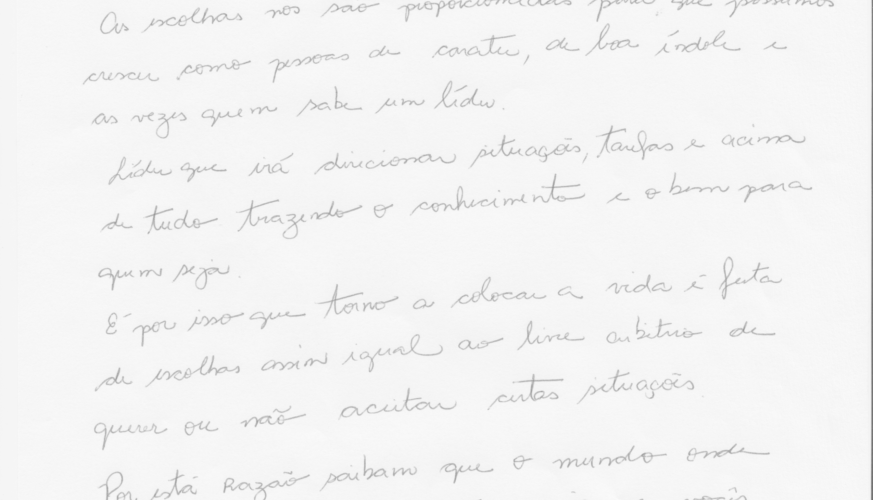 As escolhas nos são proporcionadas para que possamos
crescer como pessoas de carater, de boa índole e
as vezes quem sabe um líder.
Líder que irá direcionar situações, tarefas e acima
de tudo trazendo o conhecimento e o bem para
quem seja.
É por isso que torno a colocar a vida é feita
de escolhas assim igual ao livre arbitrio de
querer ou não aceitar certas situações.
Por está Razão saibam que o mundo onde